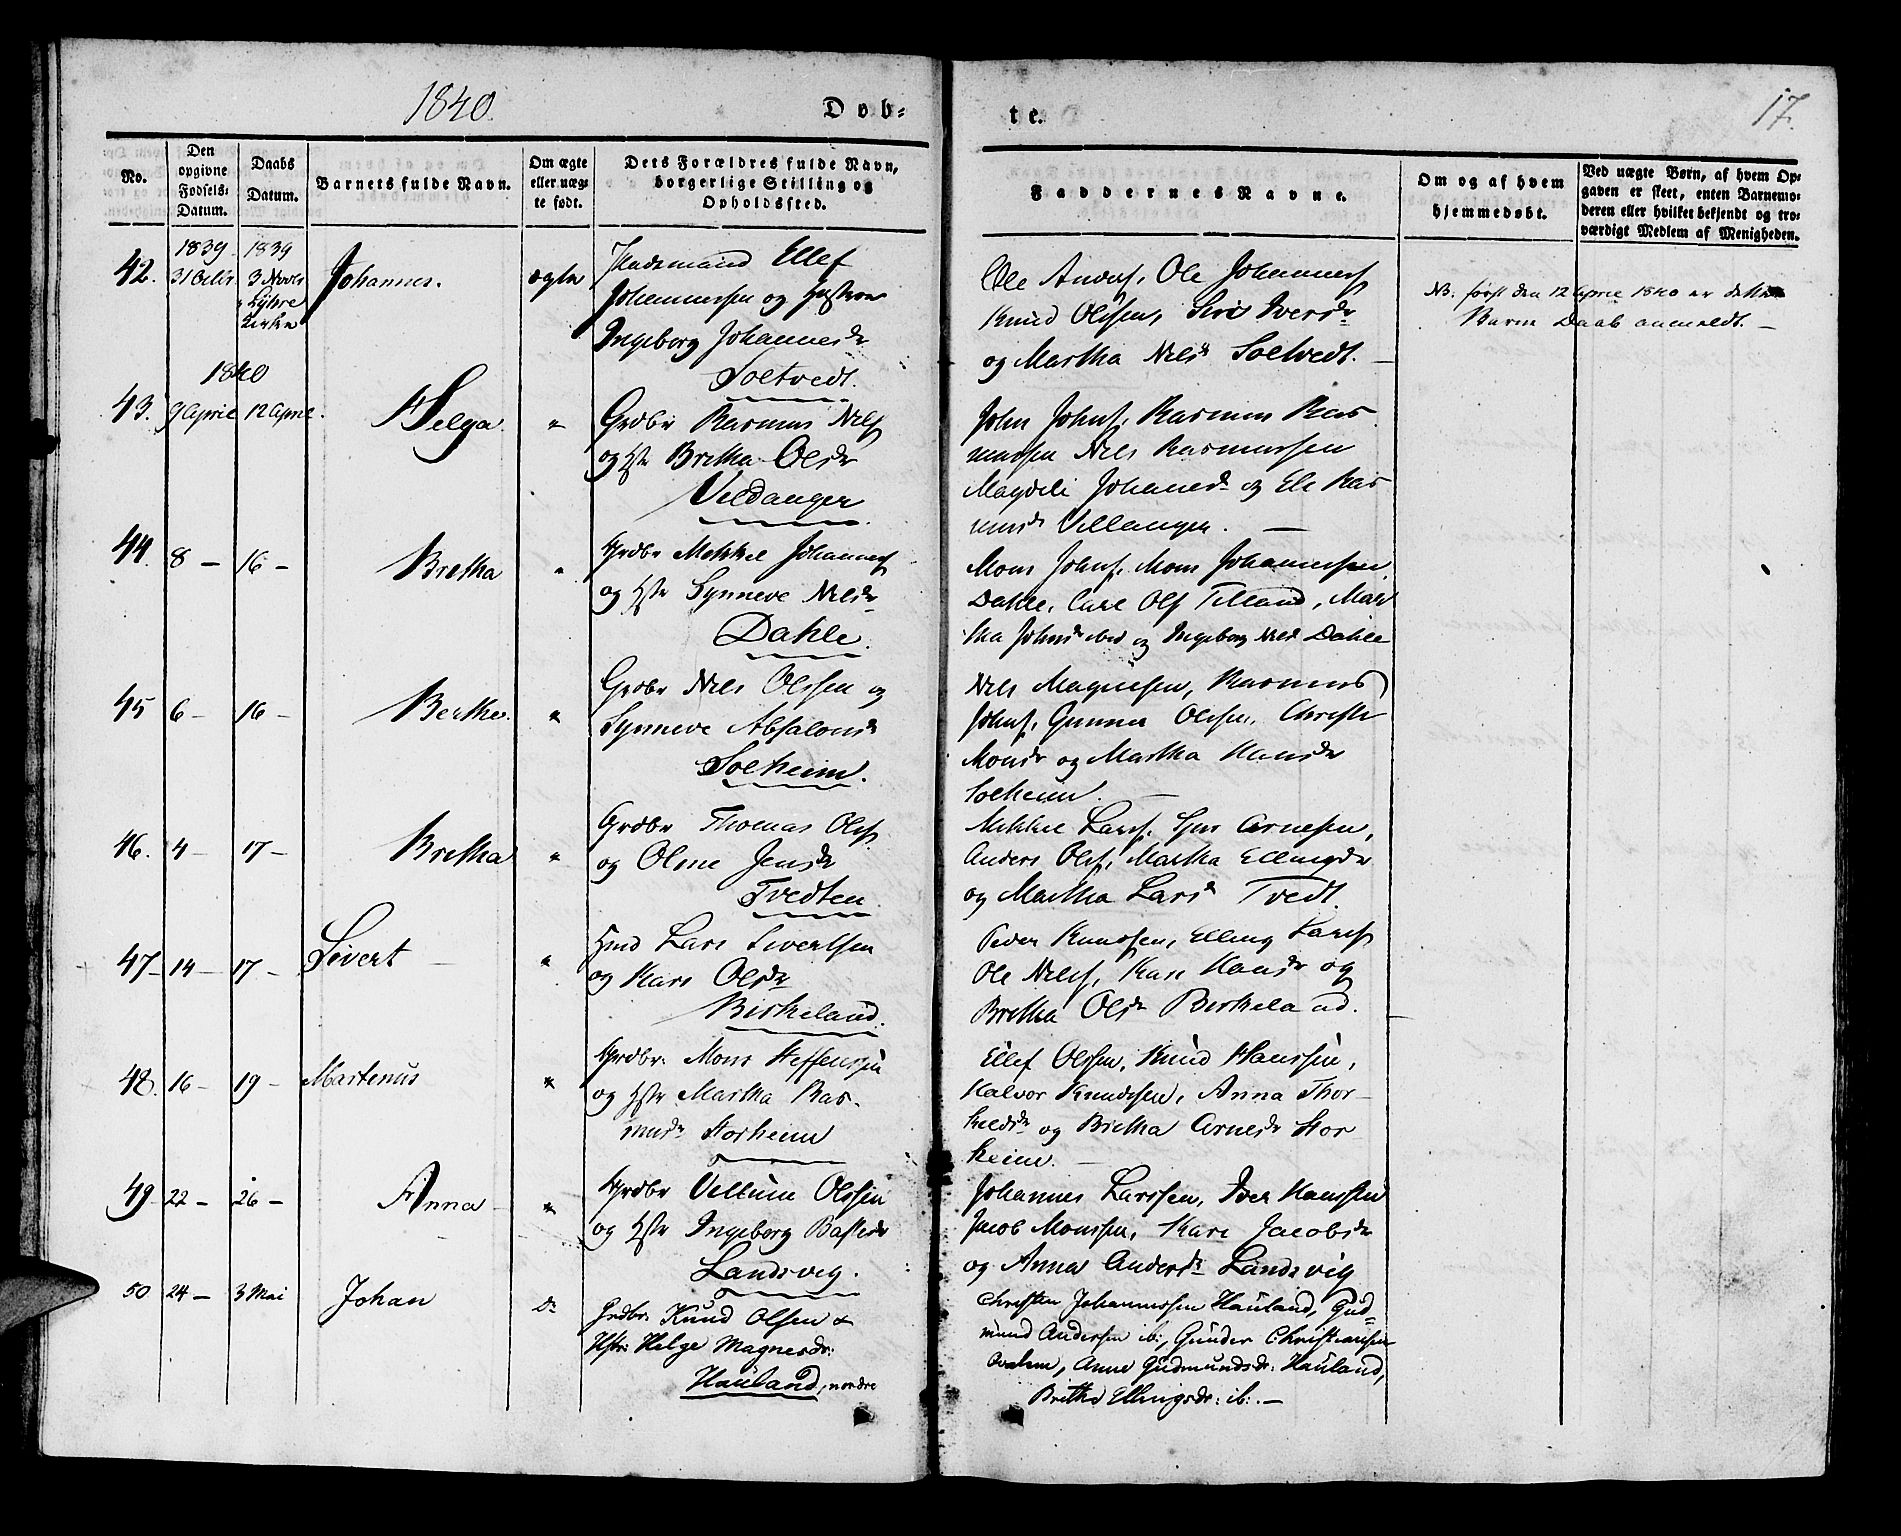 1840.
Døb-
te.
17.
No.
Den opgivne Fødsels-Datum.
Daabs Datum.
Barnets fulde Navn.
Om ægte eller uægte født.
Dets Forældres fulde Navn, borgerlige Stilling og Opholdssted.
Faddernes Navne.
Om og af hvem hjemmedøbt.
Ved uægte Børn, af hvem Op-
gaven er skeet, enten Barnemo-
deren eller hvilket bekjendt og tro-
værdigt Medlem af Menigheden.
42.
1839
31 Octbr
1839
3 Novbr
Kirke
Johannes.
ægte
Huusmand Ellef
Johannessen og Hustrue
Ingeborg Johannesdr
Soltvedt.
Ole Anders, Ole Johanness
Knud Olssen, Siri Iversdr
og Martha Nilsdr Soltvedt.
NB. først den 12 April 1840 er dette
Barns Daab anmeldt. —
1840
43.
9 April
12 April
Helga.
"
Grdbr Rasmus Nils
og Hstr Bretha Olsdr
Veldanger
John Johns, Rasmus Ras
mussen Nils Rasmussen
Magdeli Johannesdr og Ras
musdr
44.
8 —
16 —
Bretha
"
Grdbr Mikkel Johanness
og Hstr Synneve Nilsdr
Dahle.
Mons Johns, Mons Johannessen
Dahle, Ols, Mar
tha Johnsdr ibid og Ingeborg Nilsd Dahle
45
6 —
16 —
Berthe.
"
Grdbr Nils Olssen og
Synneve Absalonsdr
Solheim.
Nils Magnesen, Rasmus
Johns, Gunner Olssen, Christi
Monsdr og Martha Hansdr
Solheim. —
46.
4 —
17 —
Bretha
"
Grdbr Thomas Olss
og Olme Jensdr
Tvedten
Mikkel Lars, Arnesen,
Anders Ols, Martha Ellingsdr
og Martha Larsdr Tvedt.
47 —
14 —
17 —
Sivert
"
Hmd Lars Sivertsen
og Kari Olsdr
Birkeland.
Peder Knudsen, Elling Larss
Ole Nils, Kari Hansdr og
Bretha Olsdr Birkeland.
48.
16 —
19 —
Martenus
"
Grdbr. Mons Steffensen
og Hstr Martha Ras-
musdr Storheim
Ellef Olssen, Knud Hanssen,
Halvor Knudsen, Anna Thor-
kildsdr og Bretha Arnesdr Stor
heim. —
49 —
22 —
26 —
Anna
"
Grdbr Villum Olssen
og Hstr Ingeborg
Landsvig.
Johannes Larssen, Iver Hanssen
Jacob Monssen, Kari Jacobsdr
og Anna Andersdr Landsvig
50
24 —
3 Mai
Johan
Do
Grdbr. Knud Olsen &
Hstr: Helge Magnesdr:
Hauland, nordre
Christen Johannessen Hauland, Gud-
mund Andersen ib:, Gunder Christiansen
Anne Gudmundsdr: Hauland,
Britha Ellingsdr: ib: —